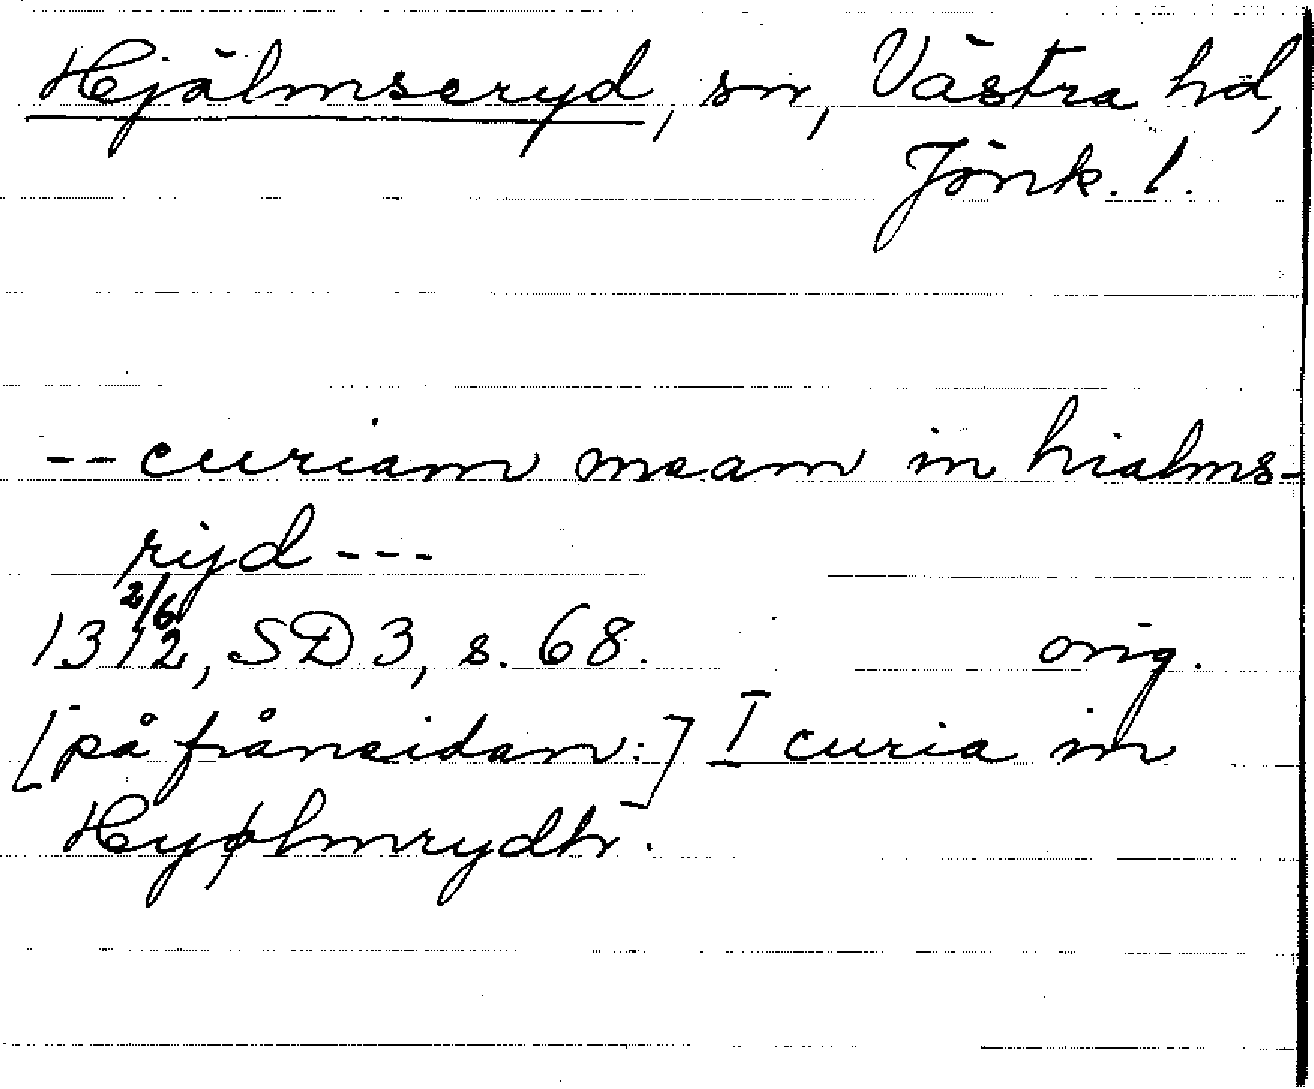 Hjälmseryd, sn, Västra hd,
Jönk. l.
-- curiam meam in hialms-
rijd ---
1312 2/6, SD 3, s. 68. orig.
[på frånsidan:] I curia in
Hyølmrydh.